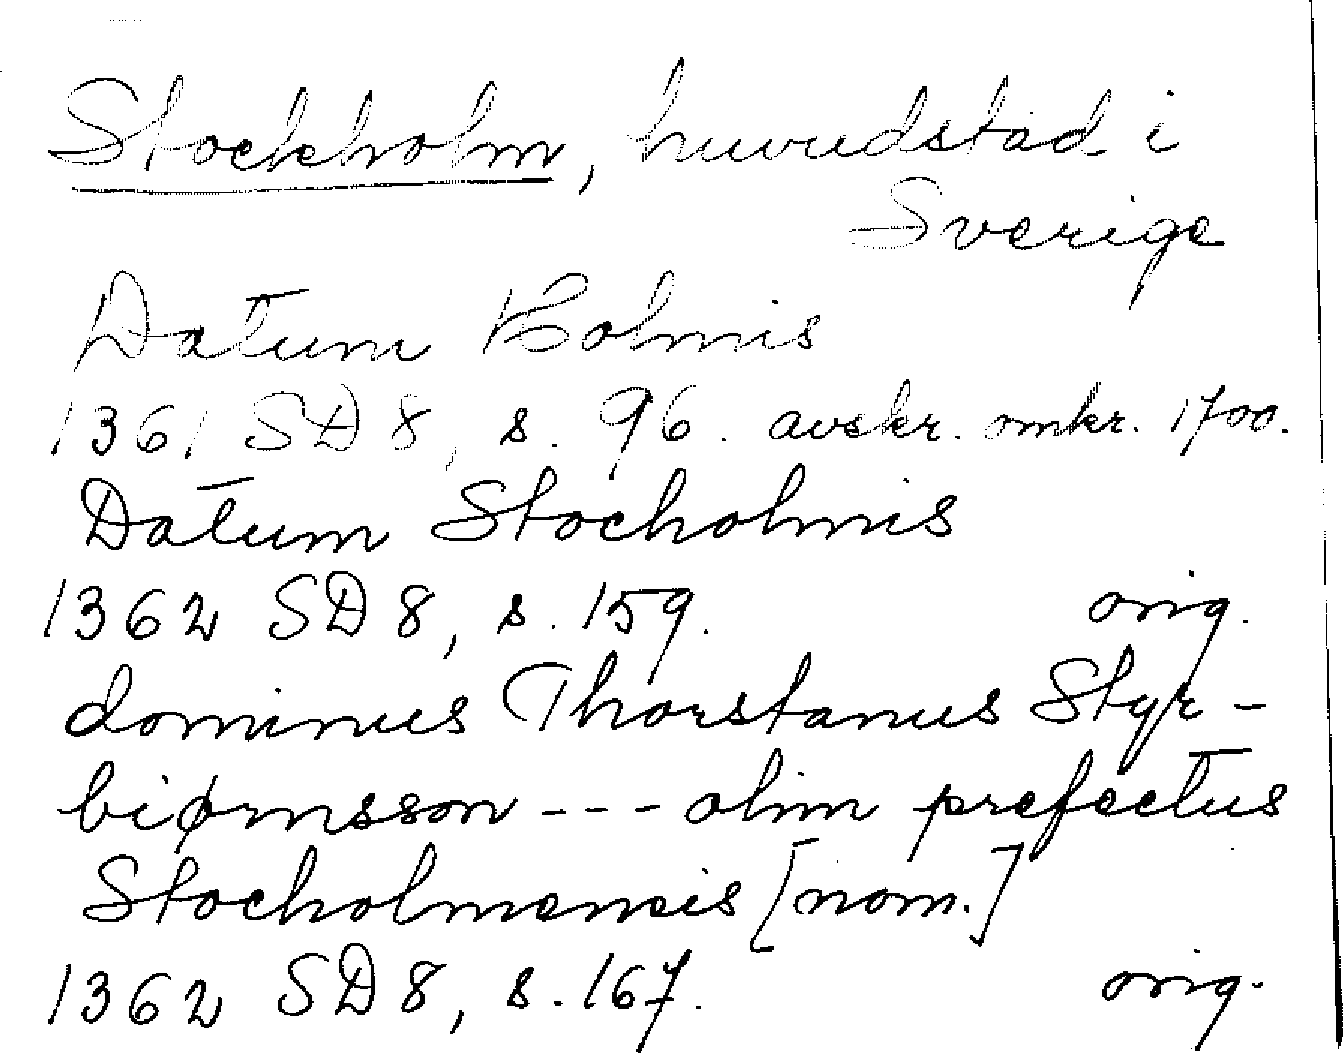 Stockholm, huvudstad i
Sverige
Datum Holmis
1361 SD 8, s. 96. avskr. omkr. 1700.
Datum Stocholmis
1362 SD 8, s. 159. orig.
dominus Thorstanus Styr-
biørnsson --- olim prefectus
Stocholmensis [nom.]
1362 SD 8, s. 167. orig.